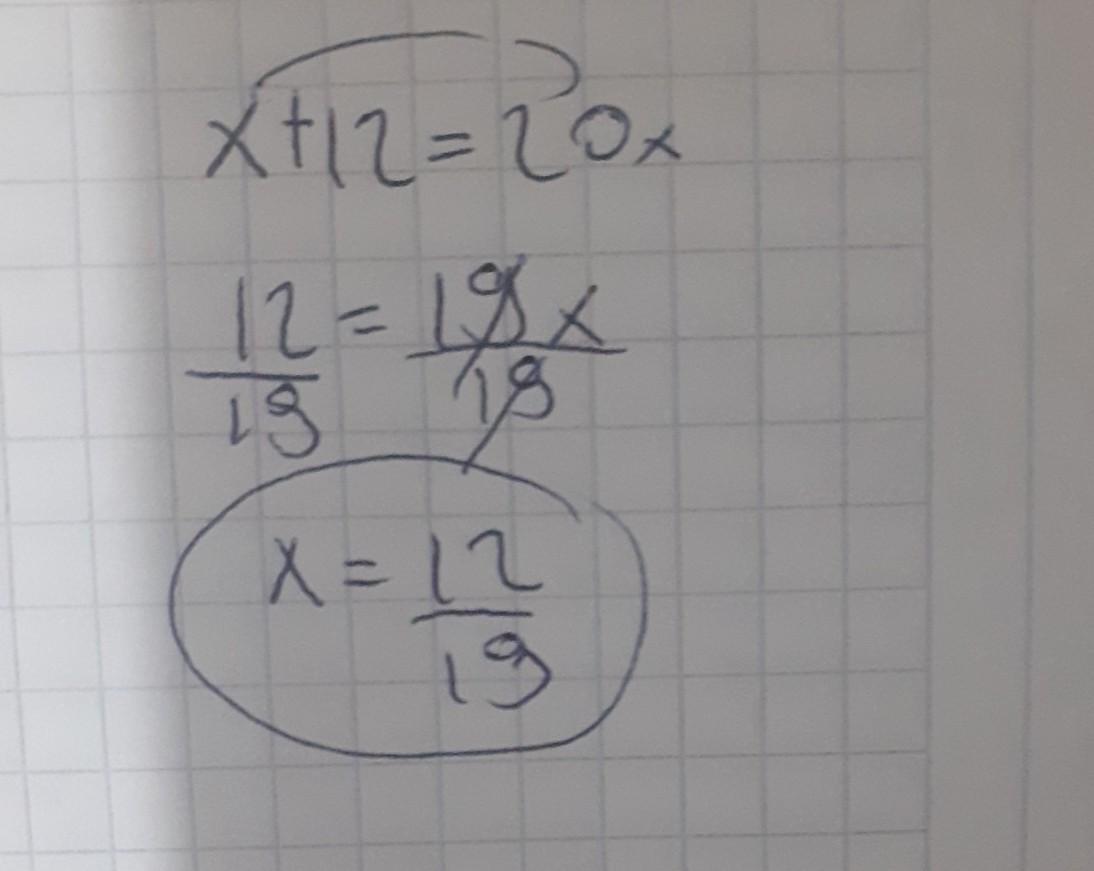 x+12=20x
12/19 = 19x/19
x = 12/19